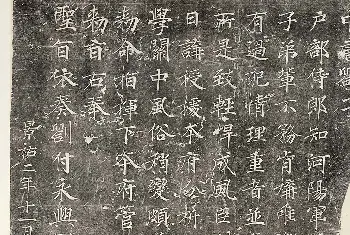 中書劄子
户部侍郎知河陽軍
子弟輩不務肖
有過犯情理重者並
是致輕悍成風臣
日講授據本府分析
學關中風俗稍變頗
勑命指揮下本府管
勑旨右奉
聖旨依奏劄付永興
景祐二年十一月